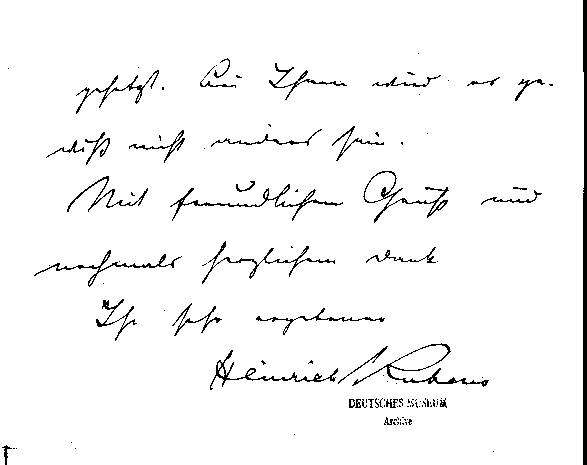 gesetzt. Bei Ihnen wird es ge-
wiß nicht anders sein.
Mit freundlichem Gruß und
nochmals herzlichem Dank
Ihr sehr ergebener
Heinrich Rubens
DEUTSCHES MUSEUM
Archive